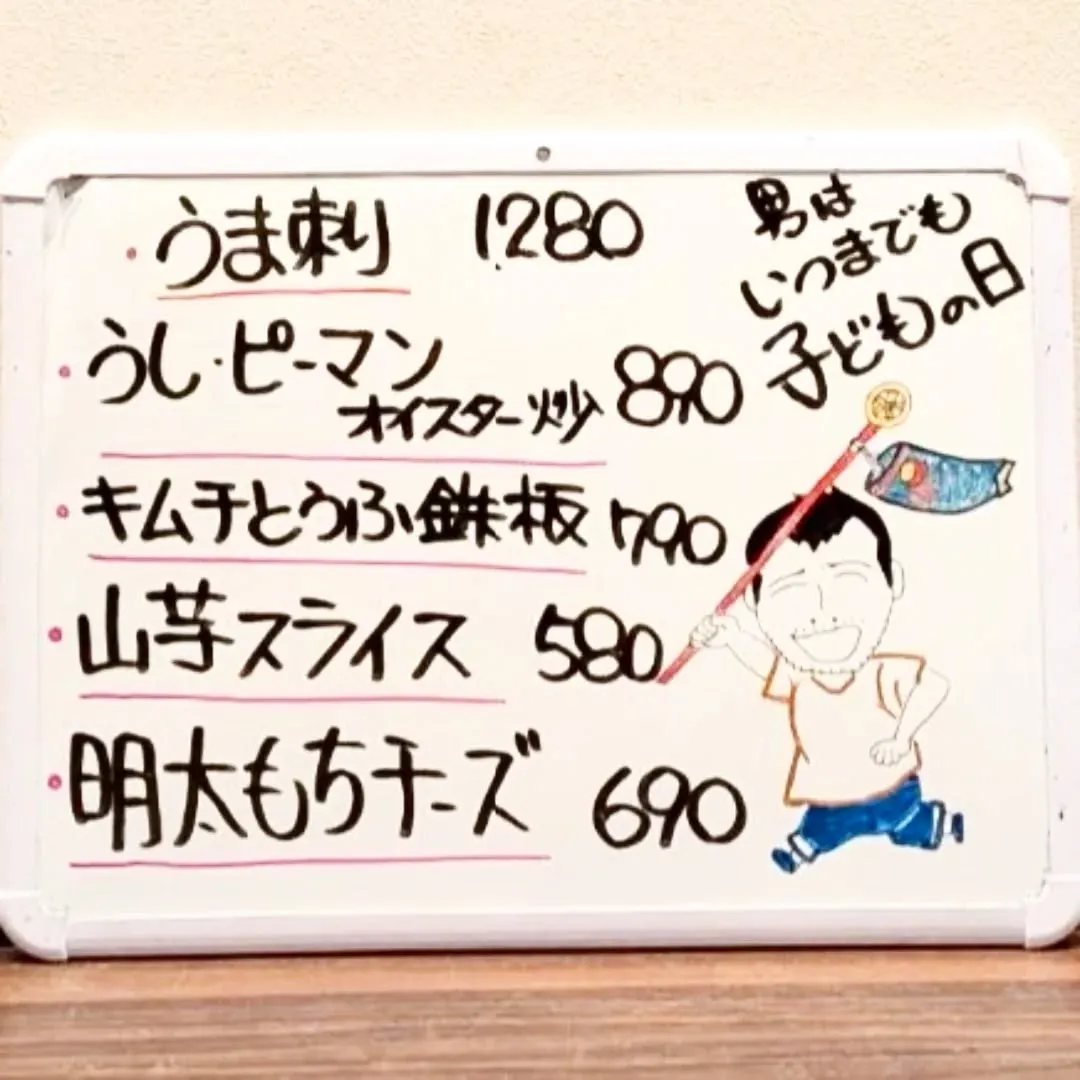 ・うま刺り 1280
・うし・ピーマン
オイスター炒 890
・キムチとうふ鉄板 790
・山芋スライス 580
・明太もちチーズ 690
男は
いつまでも
子どもの日